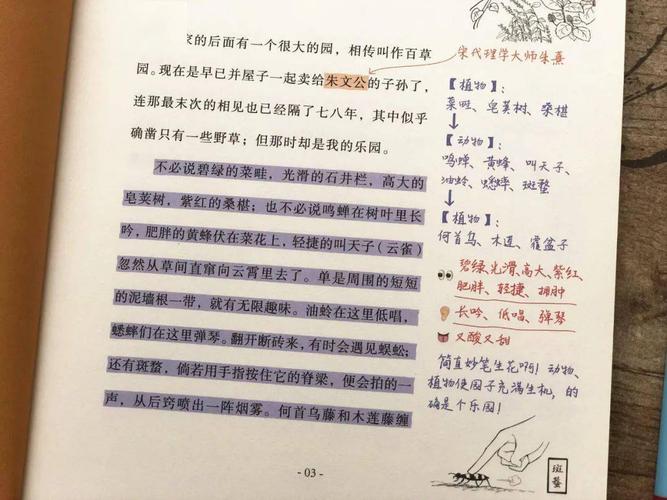 家的后面有一个很大的园，相传叫作百草
园。现在是早已并屋子一起卖给朱文公的子孙了，
连那最末次的相见也已经隔了七八年，其中似乎
确凿只有一些野草；但那时却是我的乐园。
不必说碧绿的菜畦，光滑的石井栏，高大的
皂荚树，紫红的桑椹；也不必说鸣蝉在树叶里长
吟，肥胖的黄蜂伏在菜花上，轻捷的叫天子（云雀）
忽然从草间直窜向云霄里去了。单是周围的短短
的泥墙根一带，就有无限趣味。油蛉在这里低唱，
蟋蟀们在这里弹琴。翻开断砖来，有时会遇见蜈蚣；
还有斑蝥，倘若用手指按住它的脊梁，便会拍的一
声，从后窍喷出一阵烟雾。何首乌藤和木莲藤缠
- 03 -
宋代理学大师朱熹
【植物】：
菜畦、皂荚树、桑椹
【动物】：
鸣蝉、黄蜂、叫天子、
油蛉、蟋蟀、斑蝥
【植物】：
何首乌、木莲、覆盆子
碧绿、光滑、高大、紫红
肥胖、轻捷、拥肿
长吟、低唱、弹琴
又酸又甜
简直妙笔生花啊！动物、
植物使园子充满生机，的
确是个乐园！
斑蝥